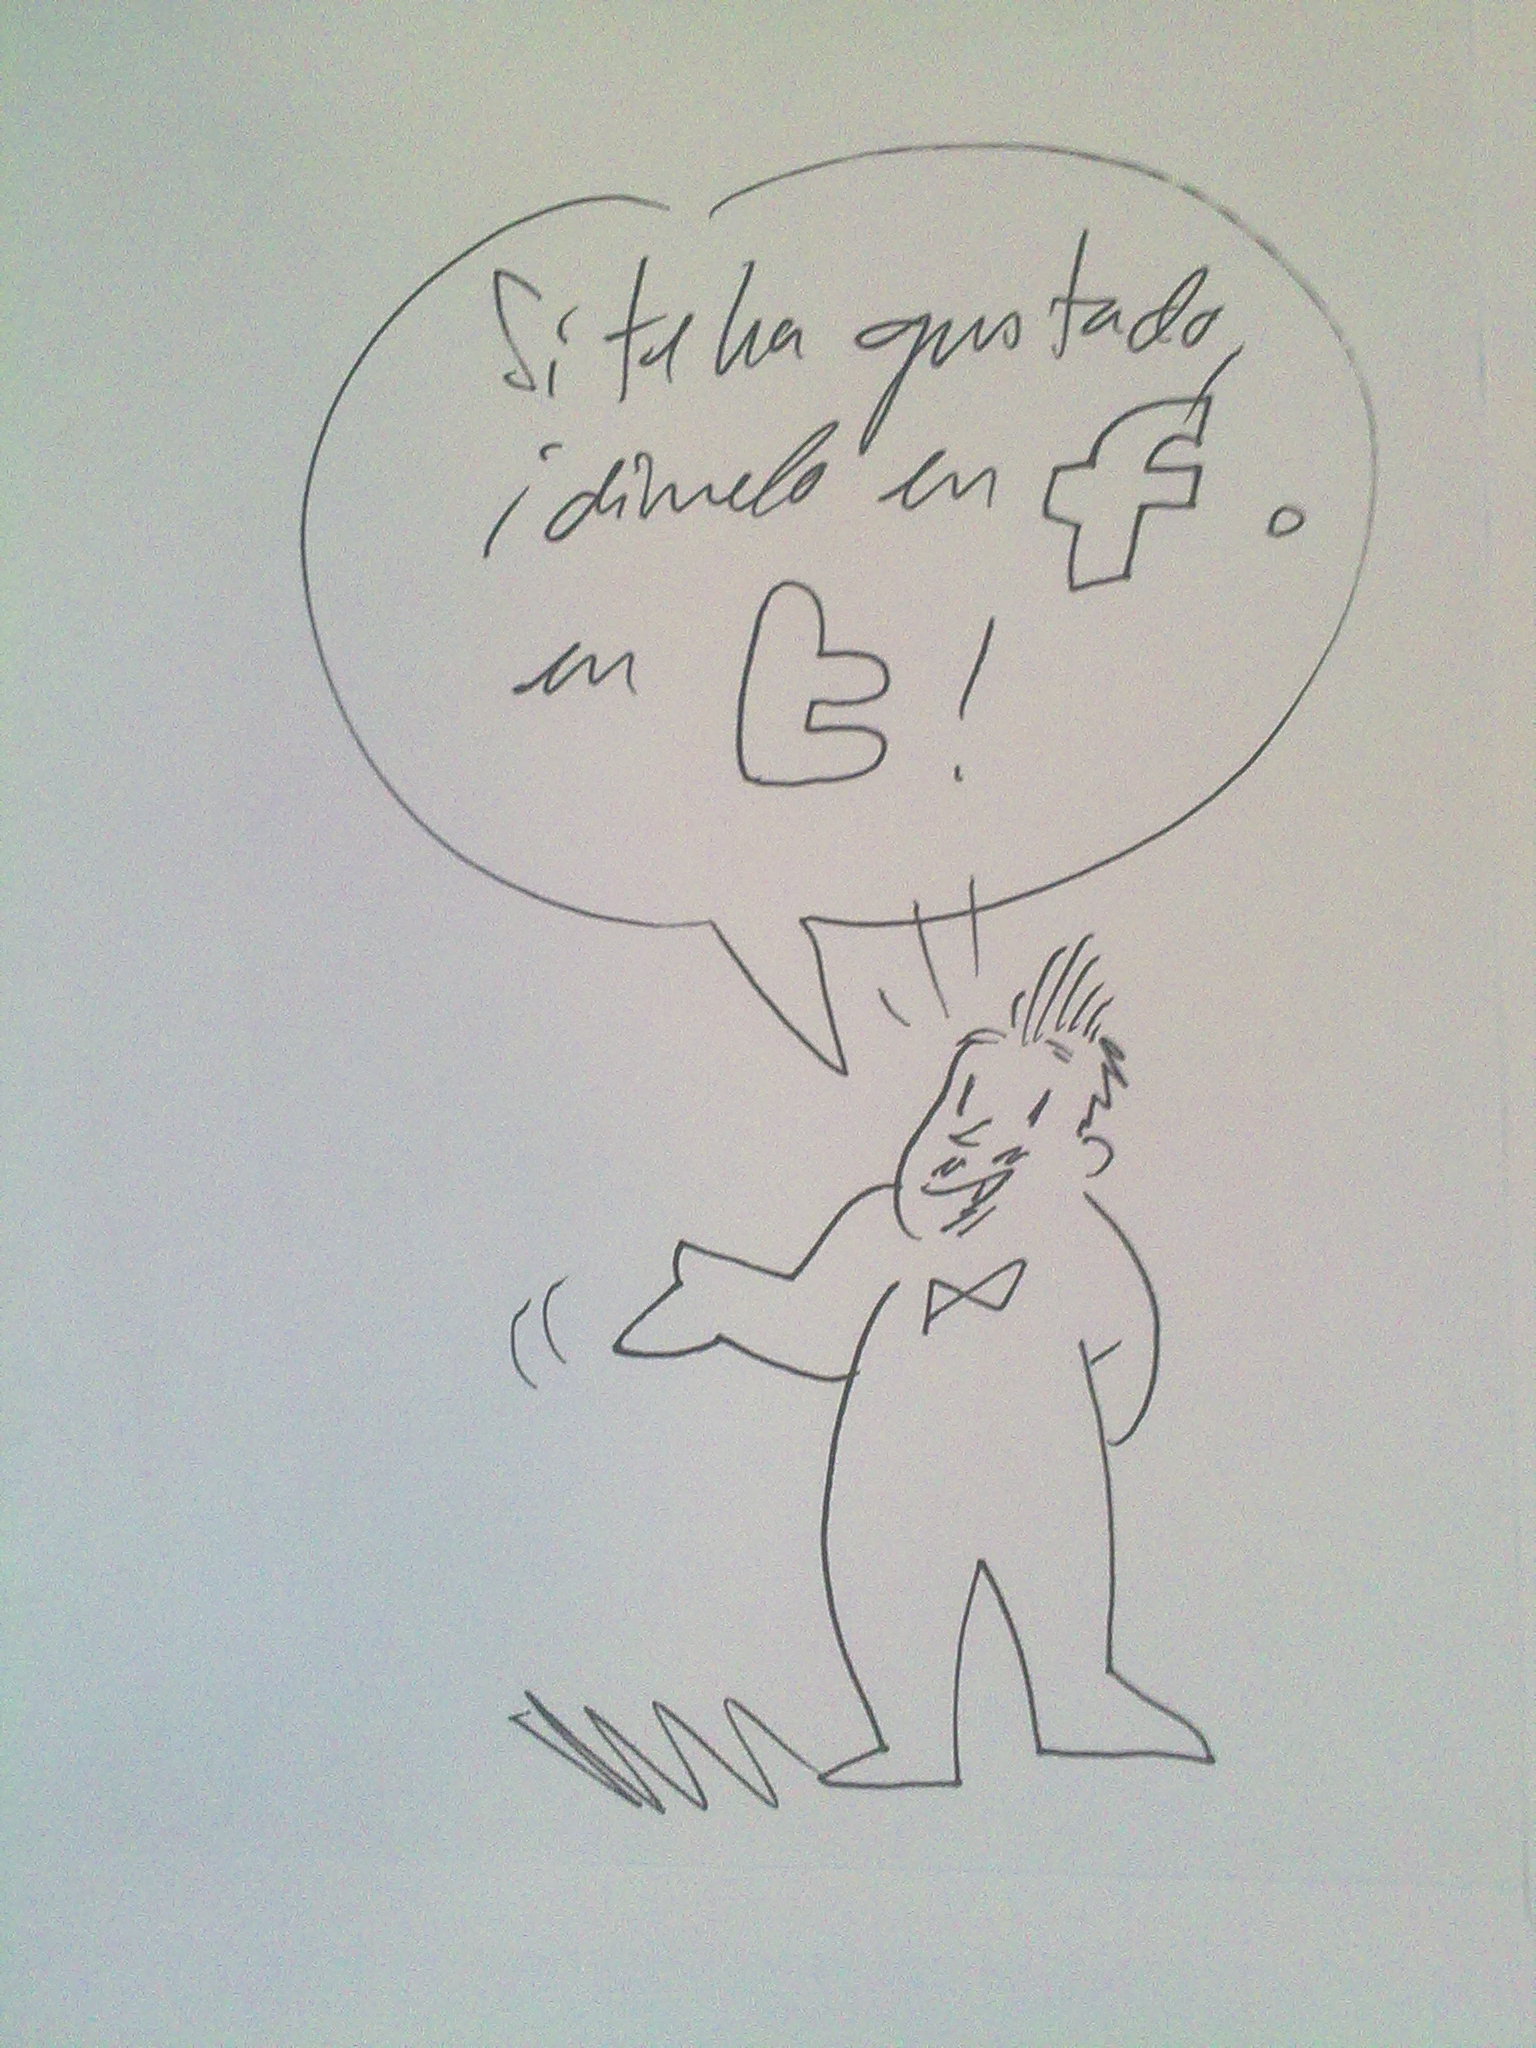 Si te ha gustado,
¡dímelo en f o
en t!